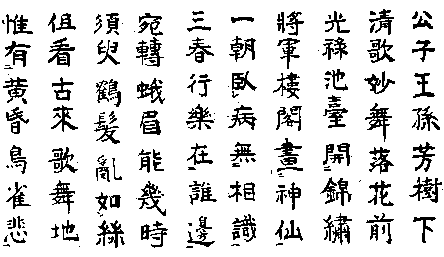 公子王孫芳樹下
清歌妙舞落花前
光祿池臺開錦繡
將軍樓閣畫神仙
一朝臥病無相識
三春行樂在誰邊
宛轉蛾眉能幾時
須臾鶴髮亂如絲
但看古來歌舞地
惟有黄昏鳥雀悲